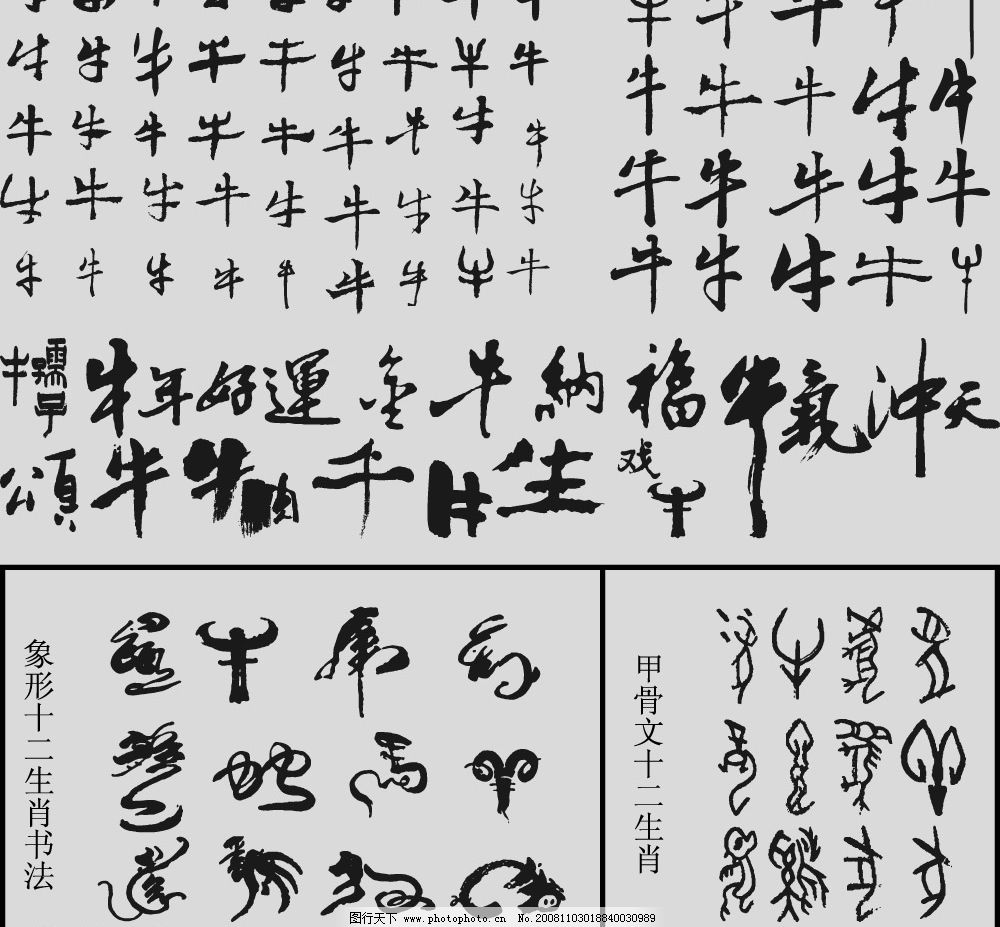 牛牛牛牛牛牛牛牛牛
牛牛牛牛牛牛牛牛牛
牛牛牛牛牛牛牛牛牛
牛牛牛牛牛牛牛牛牛
牛牛牛牛牛
牛牛牛牛牛
牛牛牛牛牛
孺子牛
牛年好運
金牛納福
牛氣冲天
頌牛
牛肉
牛
生
戏牛
象形十二生肖书法
鼠牛虎兔
龍蛇馬羊
猴雞狗豬
甲骨文十二生肖
图行天下 www.photophoto.cn No.20081103018840030989